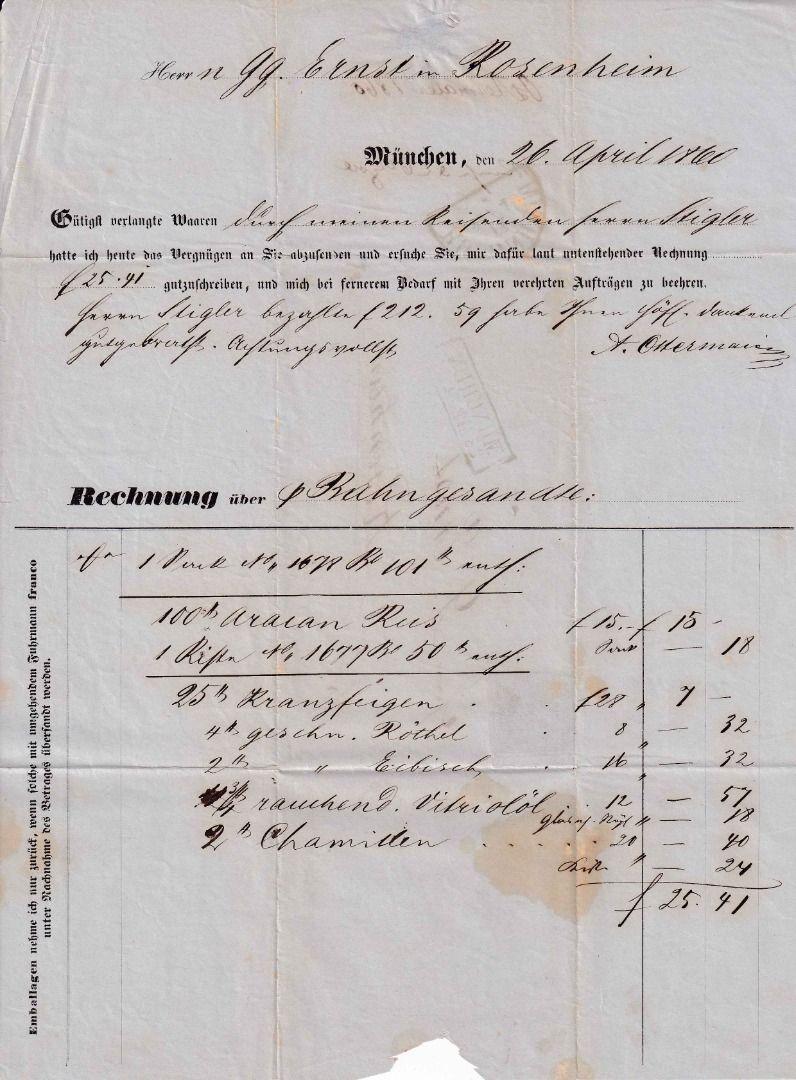 Herrn Gg. Ernst in Rosenheim
München, den 26. April 1860
Gütigst verlangte Waaren durch meinen Reisenden Herrn Stigler
hatte ich heute das Vergnügen an Sie abzusenden und ersuche Sie, mir dafür laut untenstehender Rechnung
f 25.41 gutzuschreiben, und mich bei fernerem Bedarf mit Ihren verehrten Aufträgen zu beehren.
Herrn Stigler bezahlte f 212. 59 habe Ihnen höfl. dankend
gutgebracht. Achtungsvollst
A. Ostermaier
Rechnung über p Bahn gesandte:
1 Sack No. 1678 Bo 101 ℔ enth:
100 ℔ Aracan Reis f 15. – f 15 –
Sack — 18
1 Kiste No. 1677 Bo 50 ℔ enth:
25 ℔ Kranzfeigen f 28 " 7 –
4 ℔ geschn. Röthel 8 " — 32
2 ℔ " Eibisch 16 " — 32
4 3/4 rauchend. Vitriolöl 12 — 57
" — 18
2 ℔ Chamillen 20 — 40
Kiste " — 24
f 25. 41
Emballagen nehme ich nur zurück, wenn solche mit umgehendem Fuhrmann franco
unter Nachnahme des Betrages übersandt werden.